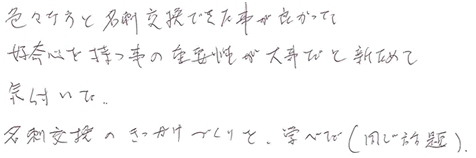 色々な方と名刺交換できた事が良かって
好奇心を持つ事の重要性が大事だと新ためて
気付いた。
名刺交換のきっかけづくりと、学べた(同じ話題).